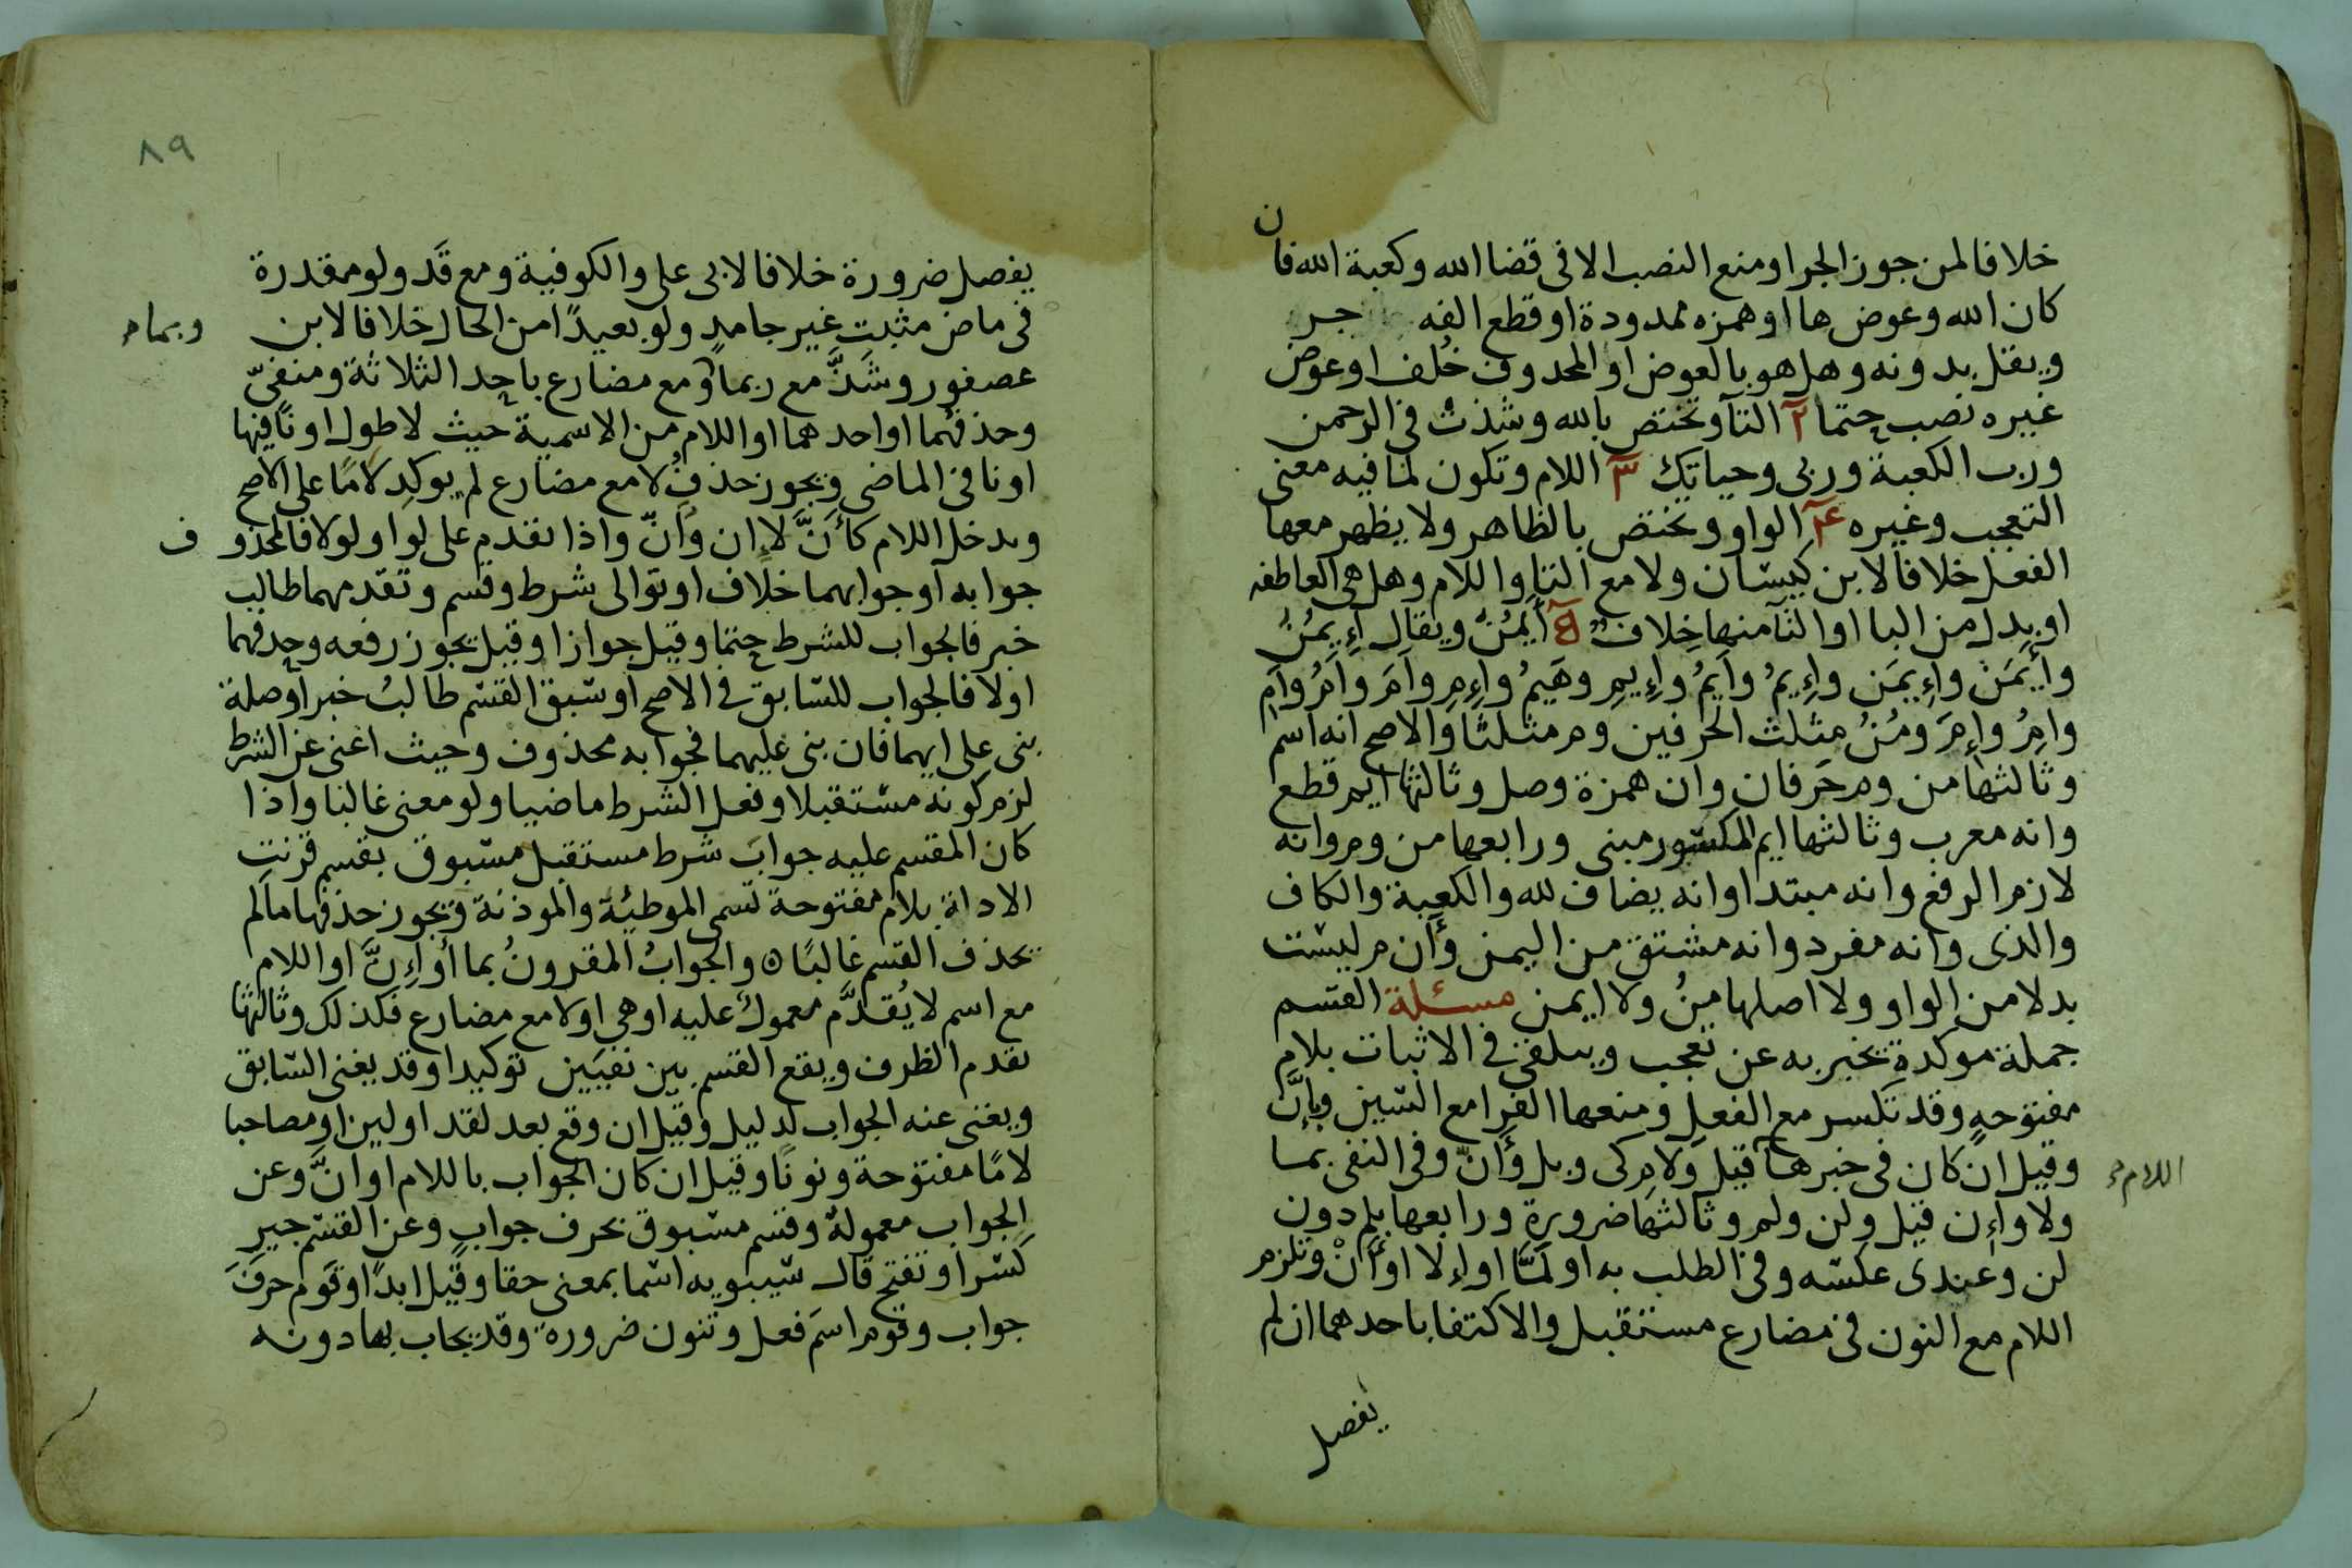 خلافا لمن جوز الجر او منع النصب الا فى قضا الله وكعبة الله فان
كان الله وعوض ها او همزه ممدودة او قطع الفه جر
ويقل بدونه وهل هو بالعوض او المحدوف خُلف او عوض
غيره نصب حتما ٢ التآ وتختص بالله وشذت فى الرحمن
ورب الكعبة وربى وحياتك ٣ اللام وتكون لما فيه معنى
التعجب وغيره ٤ الواو وتختص بالظاهر ولا يظهر معها
الفعل خلافا لابن كيسان ولا مع التا واللام وهل هى العاطفه
او بدل من البا او التآ منها خلاف ٥ أَيمُنُ ويقال إِيمُنُ
وأَيمَن وإِيمَن وإِيمُ وأَيمُ وإِيمِ وهَيمُ وإِمِ وأَمَ وأَمُ وأَمِ
وامِرُ وإِمَ ومُنُ مثلث الحرفين وم مثلثًا والاصح انه اسم
وثالثها من وم حرفان وان همزة وصل وثالثها ايم قطع
وانه معرب وثالثها ايم المكسور مبنى ورابعها من وم وانه
لازم الرفع وانه مبتدا وانه يضاف لله والكعبة والكاف
والذى وانه مفرد وانه مشتق من اليمن وأن م ليست
بدلا من الواو ولا اصلها مِنُ ولا ايمن مسئلة القسم
جملة موكدة تخبر به عن تعجب ويتلقى فى الاثبات بلام
مفتوحةٍ وقد تكسر مع الفعل ومنعها الفرا مع السين وبإنَّ
وقيل ان كان فى خبرها قيل ولام كى وبل وأنّ وفى النفى بما
اللام
ولا وإن قيل ولن ولم وثالثها ضرورة ورابعها بلم دون
لن وعندى عكسه وفى الطلب به او لَمَّا او إلا او أَنْ وتلزم
اللام مع النون فى مضارع مستقبل والاكتفا باحدهما ان لم
يفصل
٨٩
يفصل ضرورة خلافا لابى على والكوفية ومع قَد ولو مقدرة
فى ماض مثبت غير جامدٍ ولو بعيدًا من الحال خلافا لابن
وبما
عصفور وشَذَّ مع ربما ومع مضارع باحد الثلاثة ومنفىّ
وحذفُهما او احدهما او اللام من الاسمية حيث لا طول او نافيها
او نافى الماضى ويجوز حذفُ لا مع مضارع لم يوكد لامًا على الاصح
وبدخل اللام كأنَّ لا ان وأَنّ واذا تقدم على لو او لولا فالمحذوف
جوابه او جوابهما خلاف او توالى شرط وقسم وتقدمهما طالب
خبر فالجواب للشرط حتما وقيل جوازا وقيل يجوز رفعه وحذفهما
اولا فالجواب للسابق فى الاصح او سبق القسم طالبُ خبر او صلة
بنى على ايهما فان بنى عليهما فجوابه محذوف وحيث اغنى عن الشرط
لزم كونه مستقبلا وفعل الشرط ماضيا ولو معنى غالبا واذا
كان المقسم عليه جوابَ شرط مستقبل مسبوق بقسم قرنت
الاداة بلام مفتوحة تسمى الموطئة والموذنة ويجوز حذفها مالم
يحذف القسم غالبًا ٥ والجوابُ المقرونُ بما أو إِنَّ او اللام
مع اسم لا يُقدَّم معموله عليه او هى اولا مع مضارع فكذلك وثالثها
تقدم الظرف ويقع القسم بين نفيين توكيدا وقد يغنى السابق
ويغنى عنه الجواب لدليل وقيل ان وقع بعد لقد او لين او مصاحبا
لامًا مفتوحة ونونًا وقيل ان كان الجواب باللام او انَّ وعن
الجواب معموله وقسم مسبوق بحرف جواب وعن القسم جير
كسرا وتفتح قال سيبويه اسما بمعنى حقا وقيل ابدًا وقوم حرفَ
جواب وقوم اسمَ فعل وتنون ضرورة وقد يجاب بها دونه